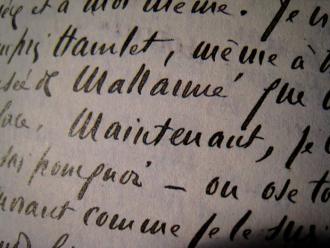 et à moi même. Je n
Hamlet, même à
de Mallarmé que
Maintenant, je
pourquoi — on ose to
comme je le sui